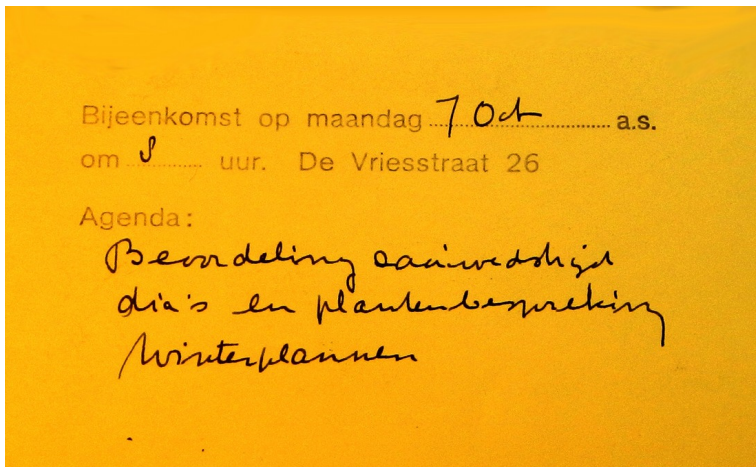 Bijeenkomst op maandag 7 Oct a.s.
om 8 uur. De Vriesstraat 26
Agenda:
Beoordeling zaaiwedstrijd
dia's en plantenbespreking
Winterplannen